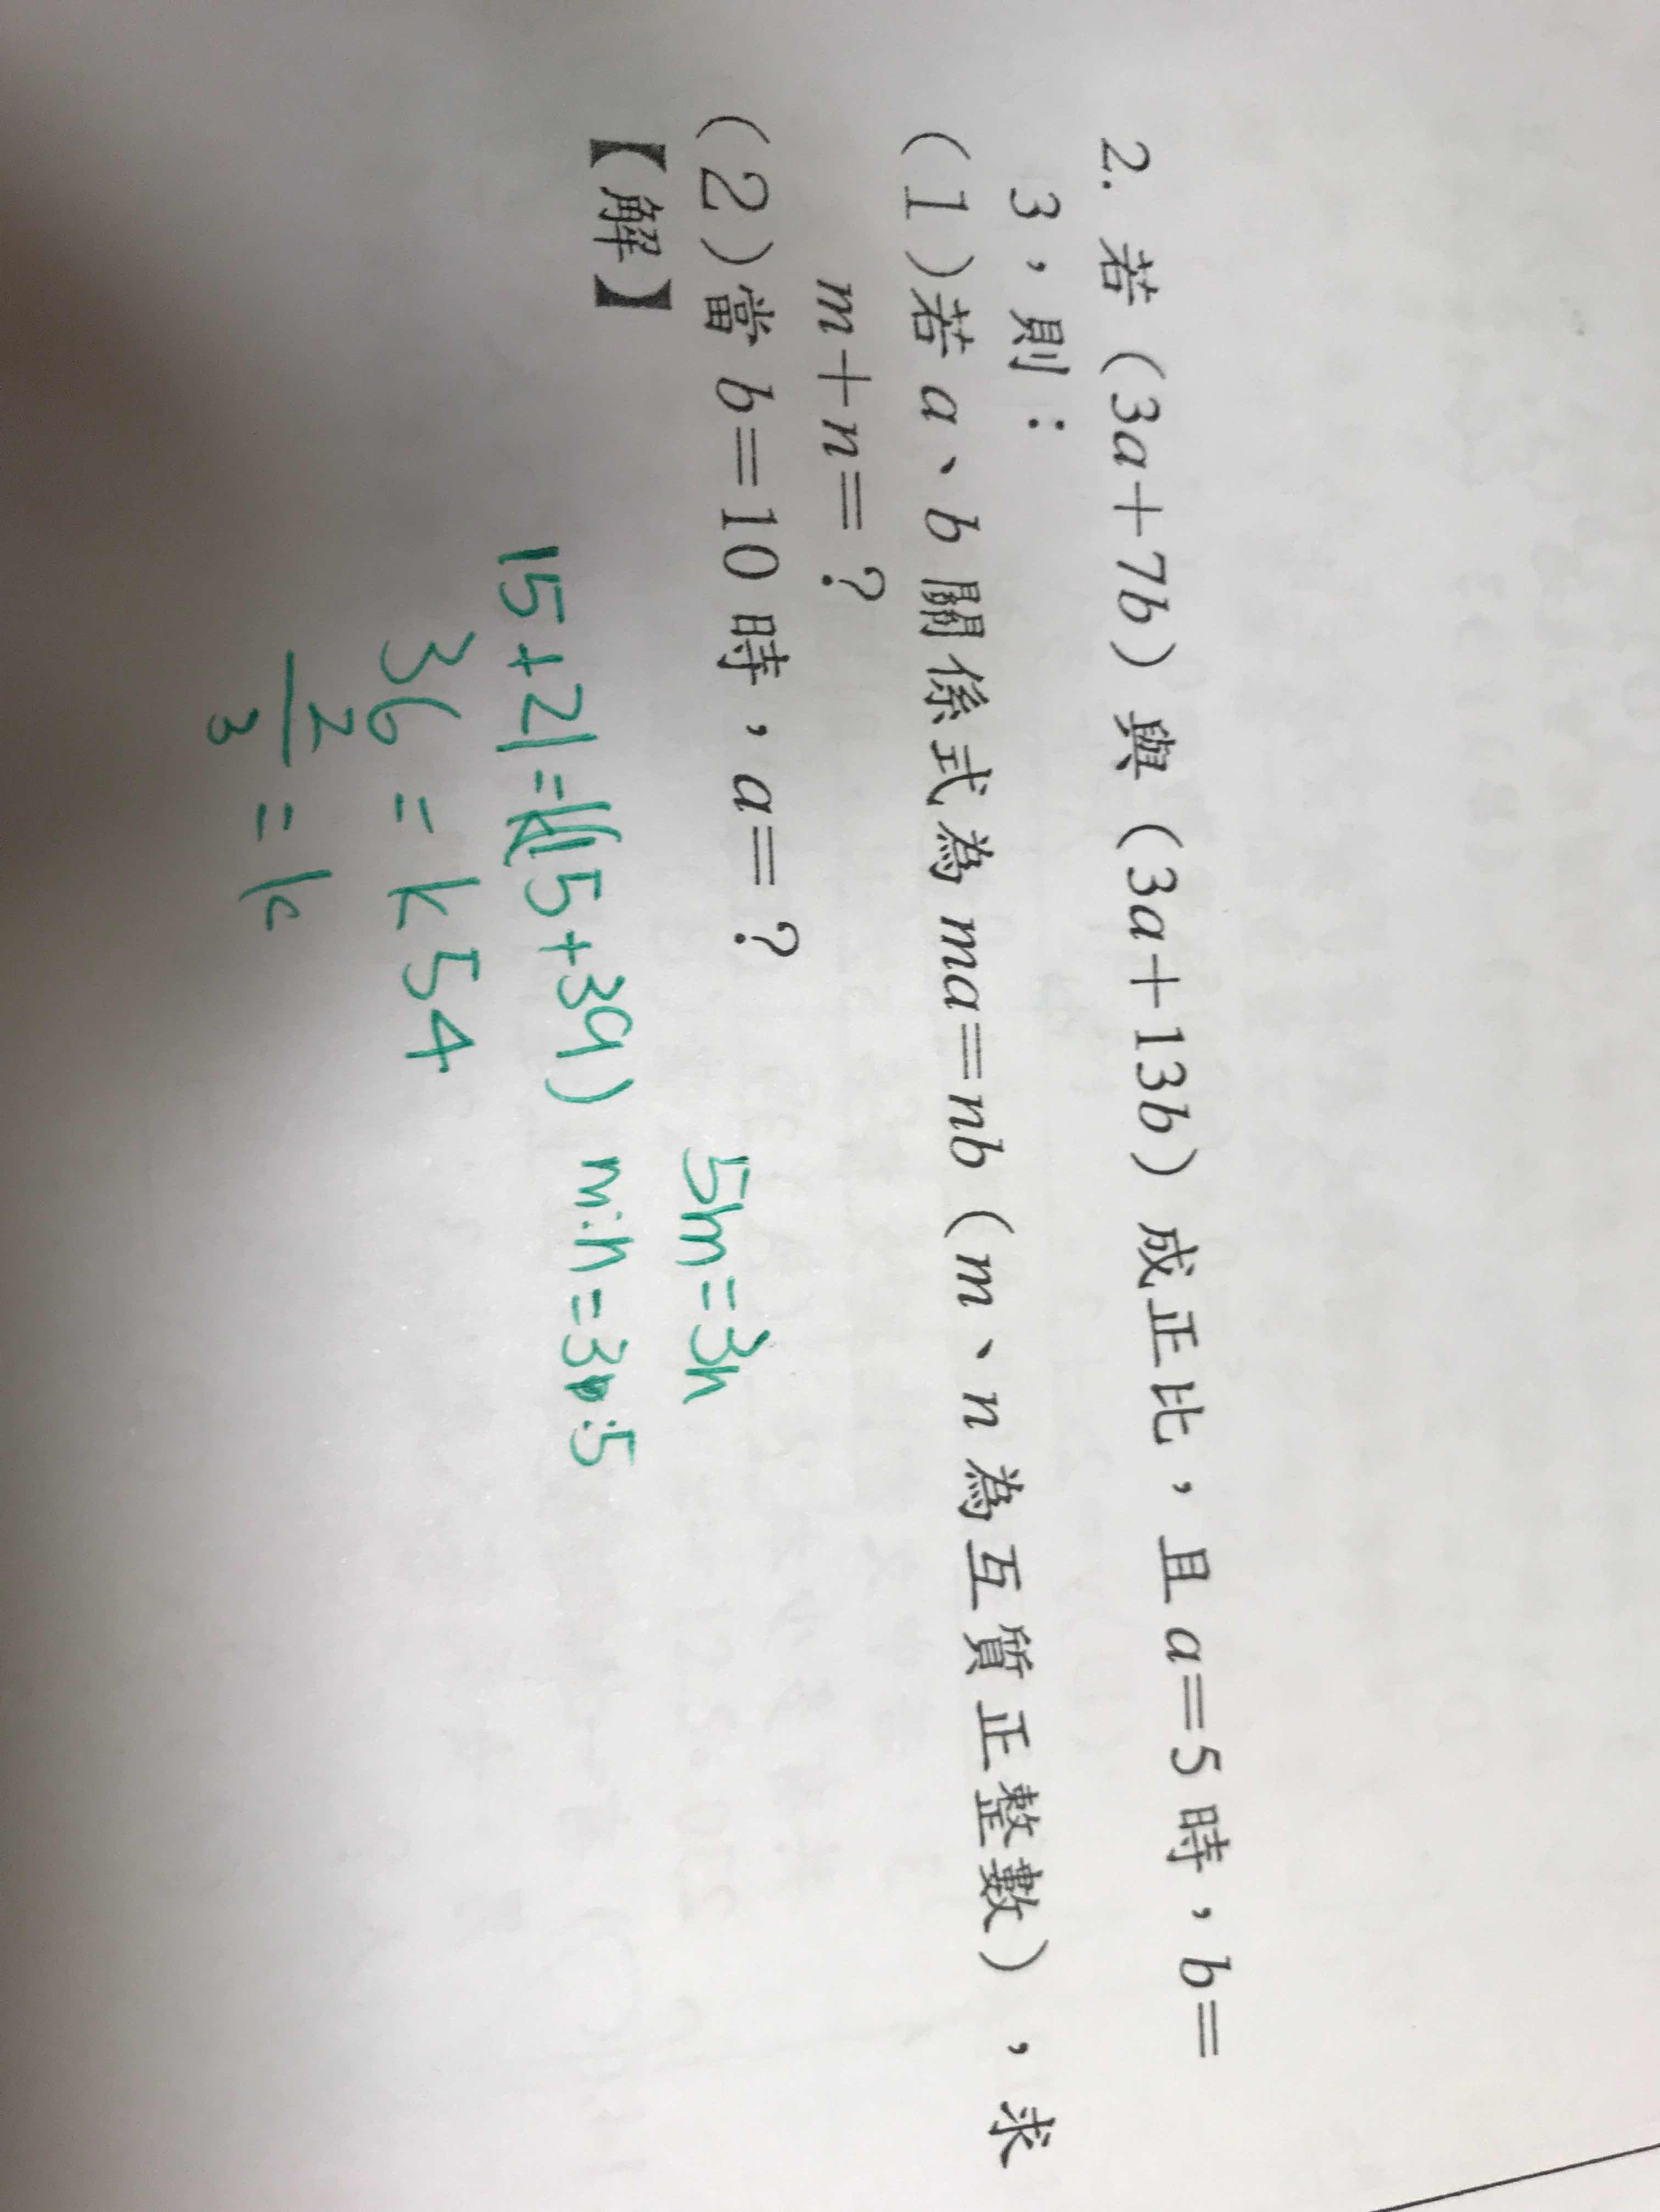 2. 若（3a＋7b）與（3a＋13b）成正比，且a＝5時，b＝
3，則：
(1)若a、b關係式為ma＝nb（m、n為互質正整數），求
m＋n＝？
(2)當b＝10時，a＝？
【解】
5m=3n
15+21=k(15+39) m:n=3:5
36=k54
2/3=k